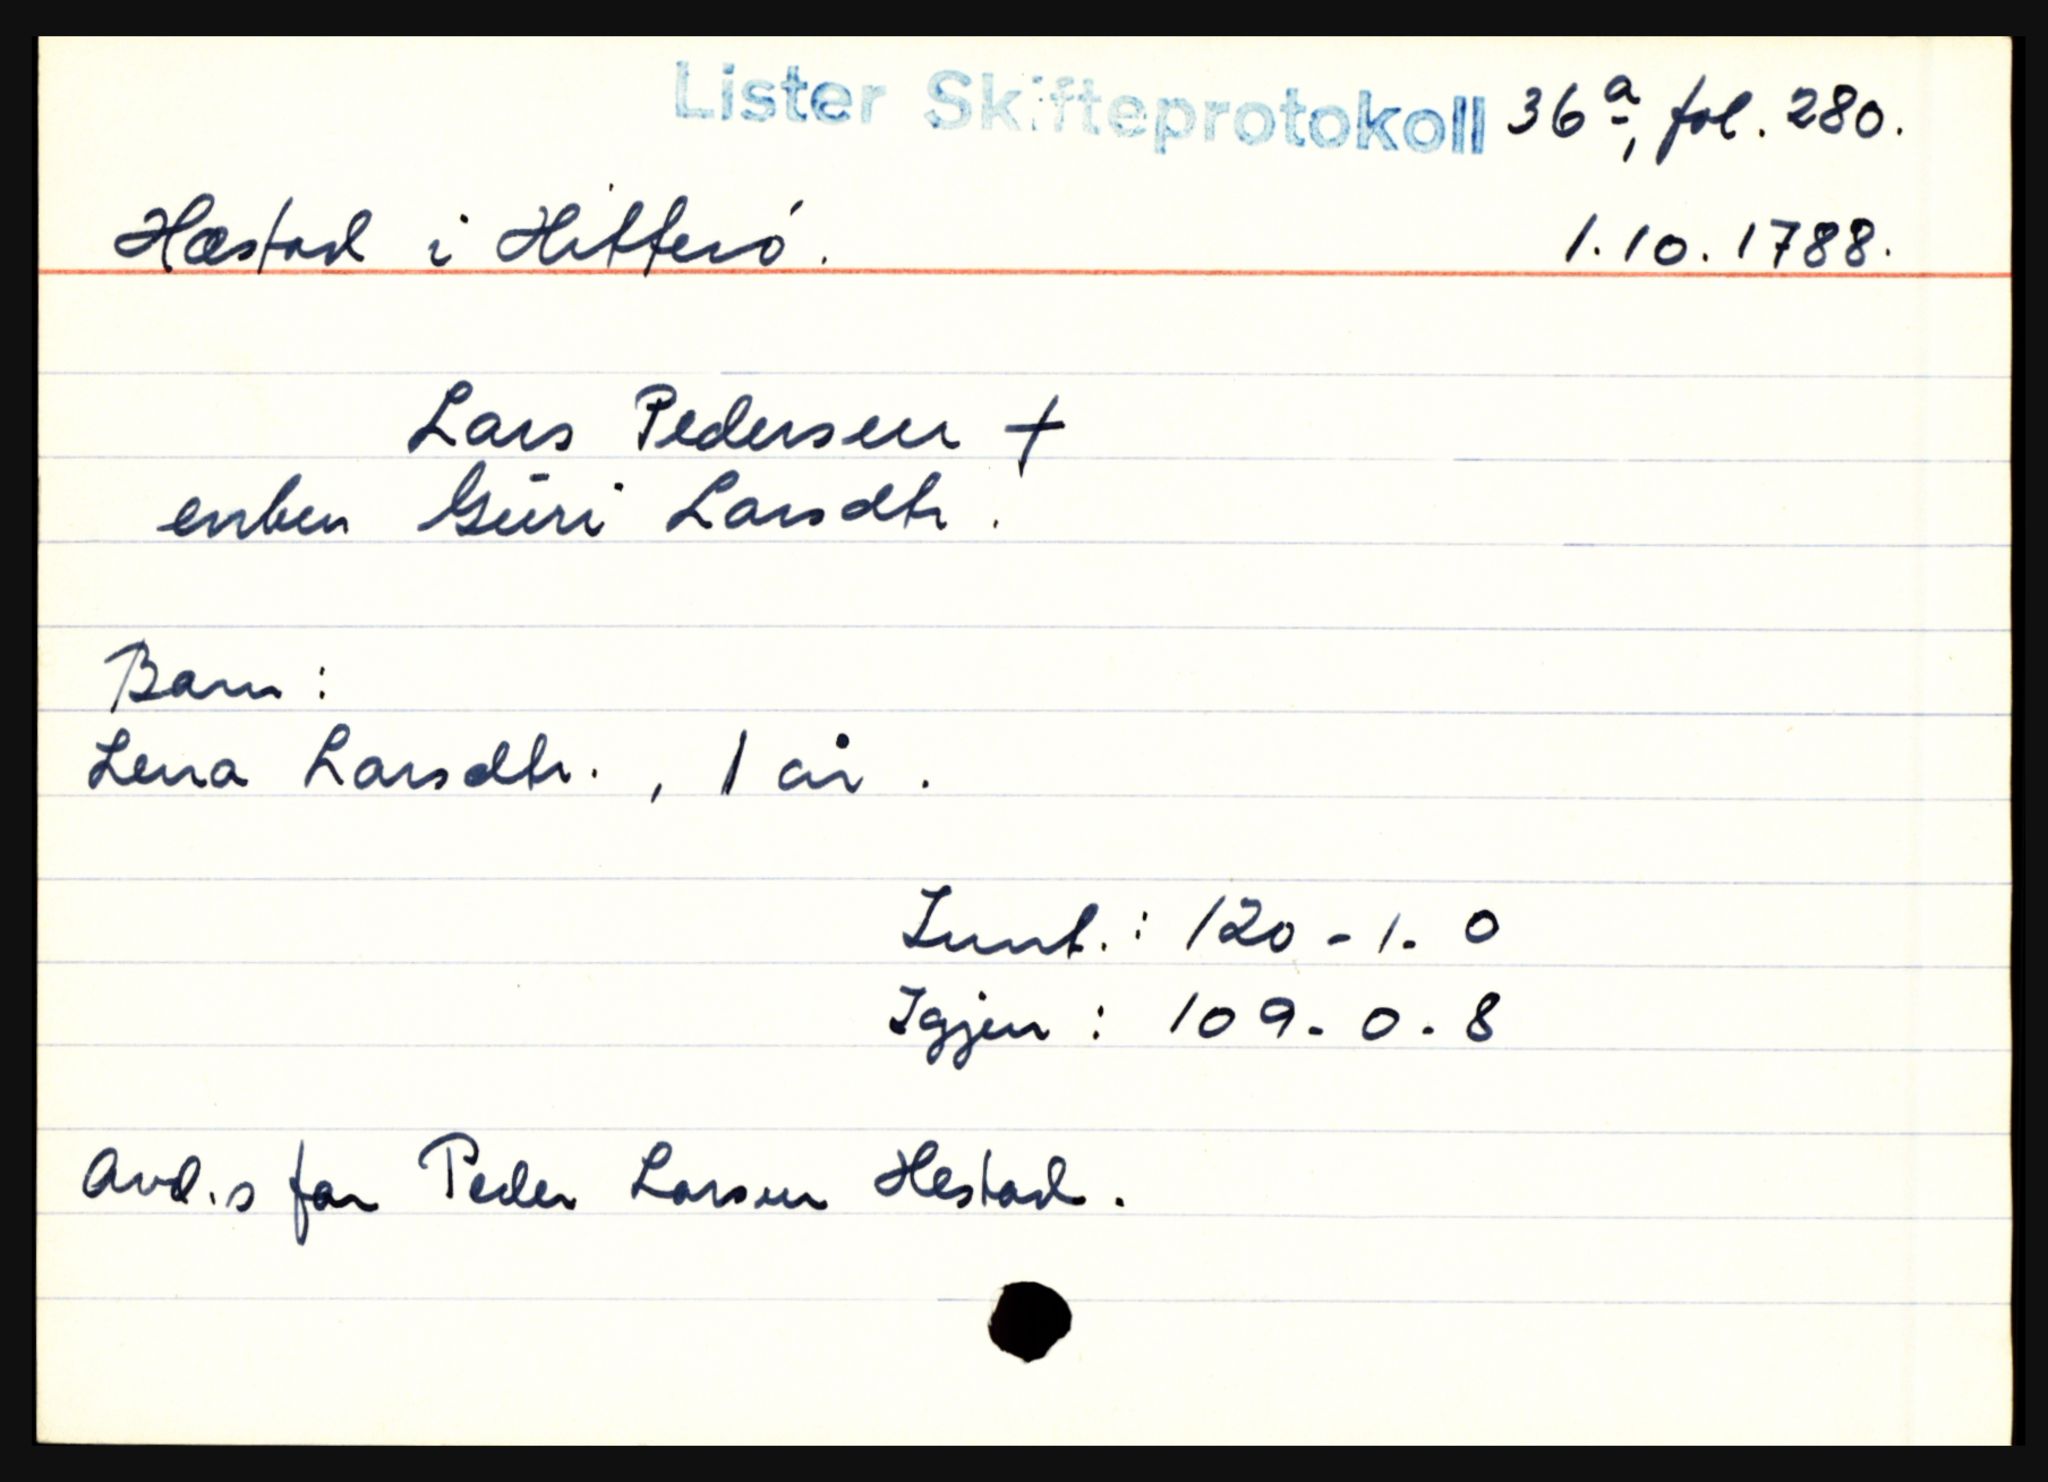 Lister Skifteprotokoll 36a, fol. 280.
Hæstad i Hitterö. 1.10.1788.
Lars Pedersen †
enken Guri Larsdtr.
Barn:
Lena Larsdtr., 1 år.
Innt.: 120-1-0
Igjen: 109-0-8
Avd.s far Peder Larsen Hestad.